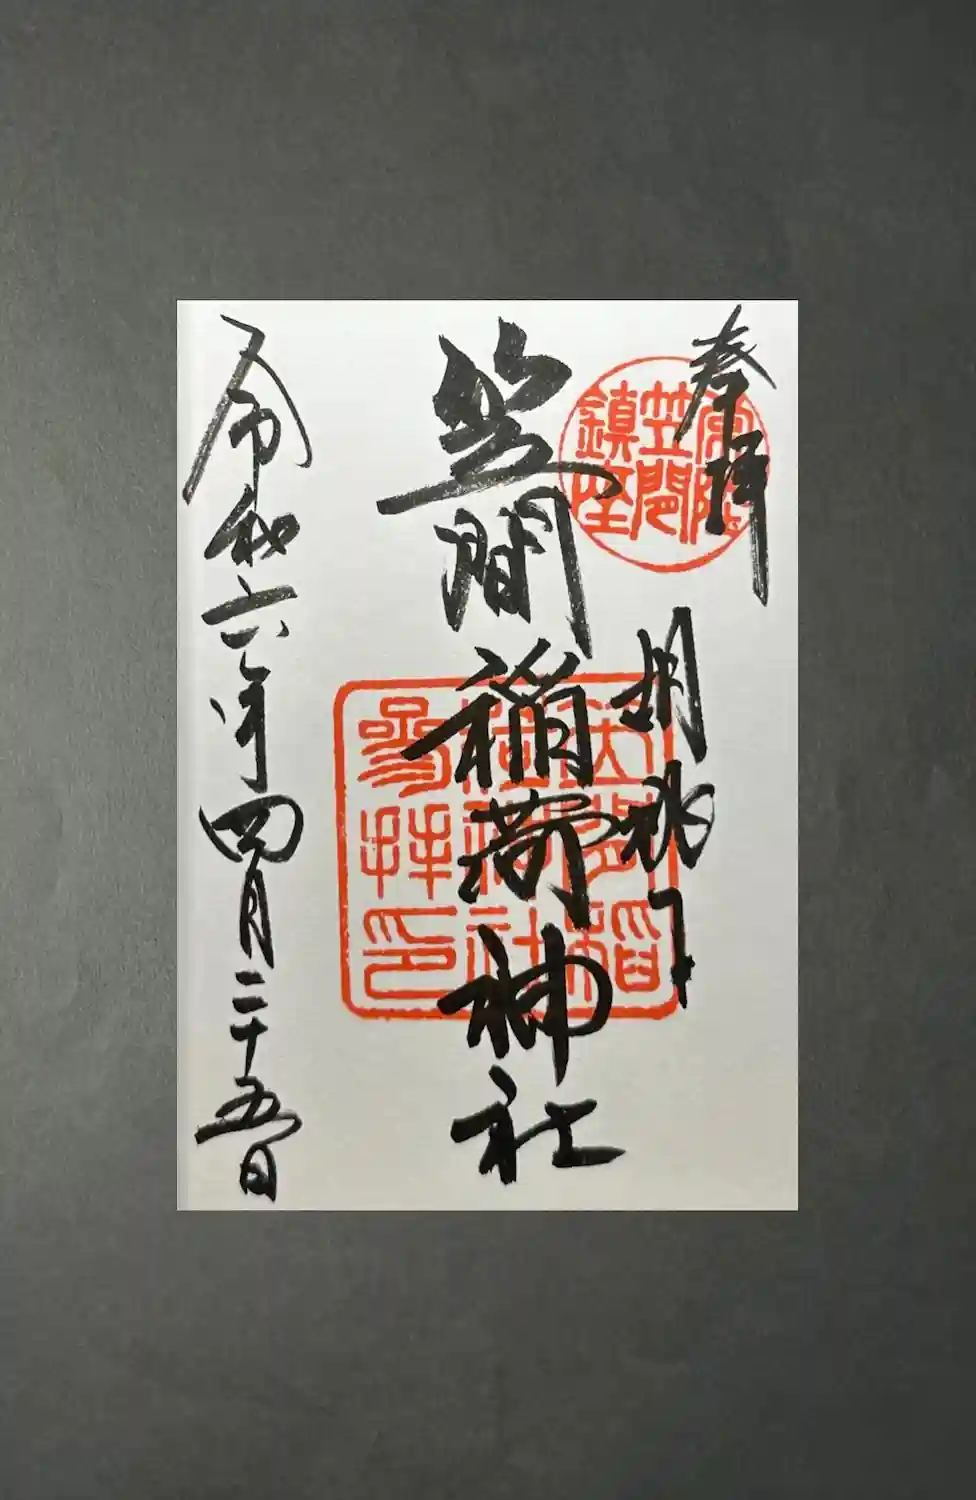 奉拝
常陸
笠間
鎮座
胡桃下
笠間稲荷神社
笠間稲
荷神社
參拝印
令和六年四月二十五日